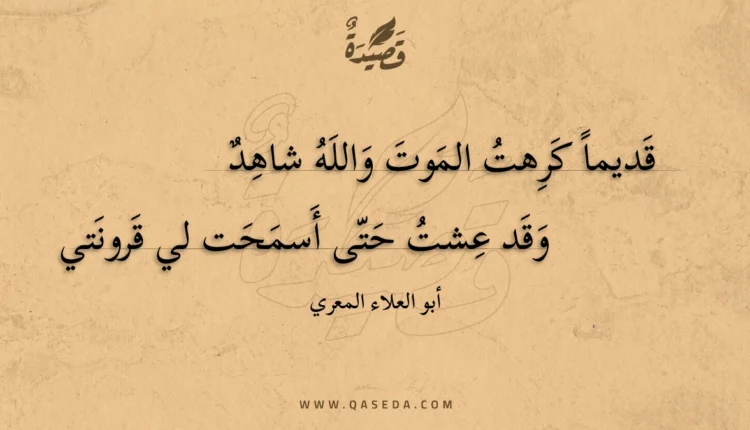 قَصِيدَةٌ
قَديماً كَرِهتُ المَوتَ وَاللَهُ شاهِدٌ
وَقَد عِشتُ حَتّى أَسمَحَت لي قَرونَتي
أبو العلاء المعري
WWW.QASEDA.COM